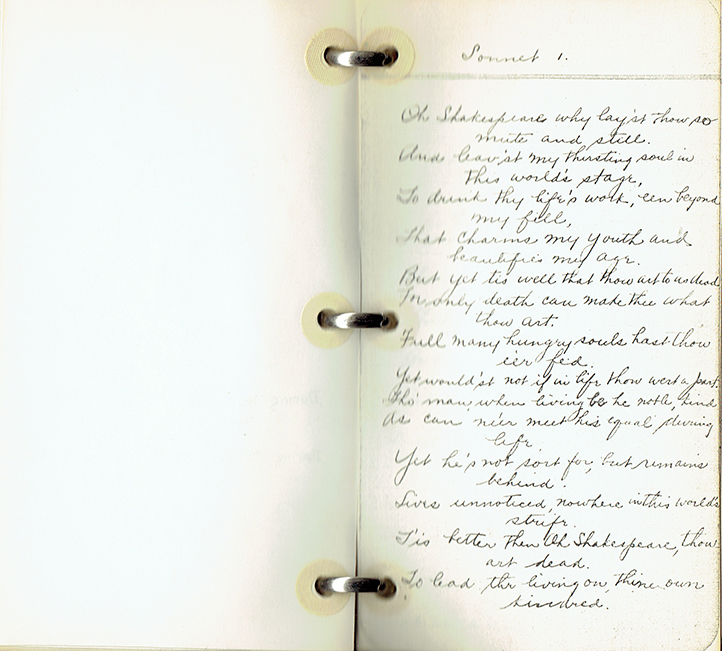 Sonnet 1.
Oh Shakespeare why lay'st thow so
mute and still.
And leav'st my thirsting soul in
this world's stage,
To drink thy life's work, e'en beyond
my fill,
That charms my youth and
beautifies my age.
But yet tis well that thow art to us dead
For only death can make thee what
thow art.
Full many hungry souls hast thow
e'er fed.
Yet would'st not if in life thow wert a part.
Tho' man when living be he noble, kind
As can ne'er meet his equal during
life
Yet he's not sort for, but remains
behind.
Lives unnoticed, nowhere in this world's
strife.
T'is better then Oh Shakespeare, thow
art dead.
To lead the living on, thine own